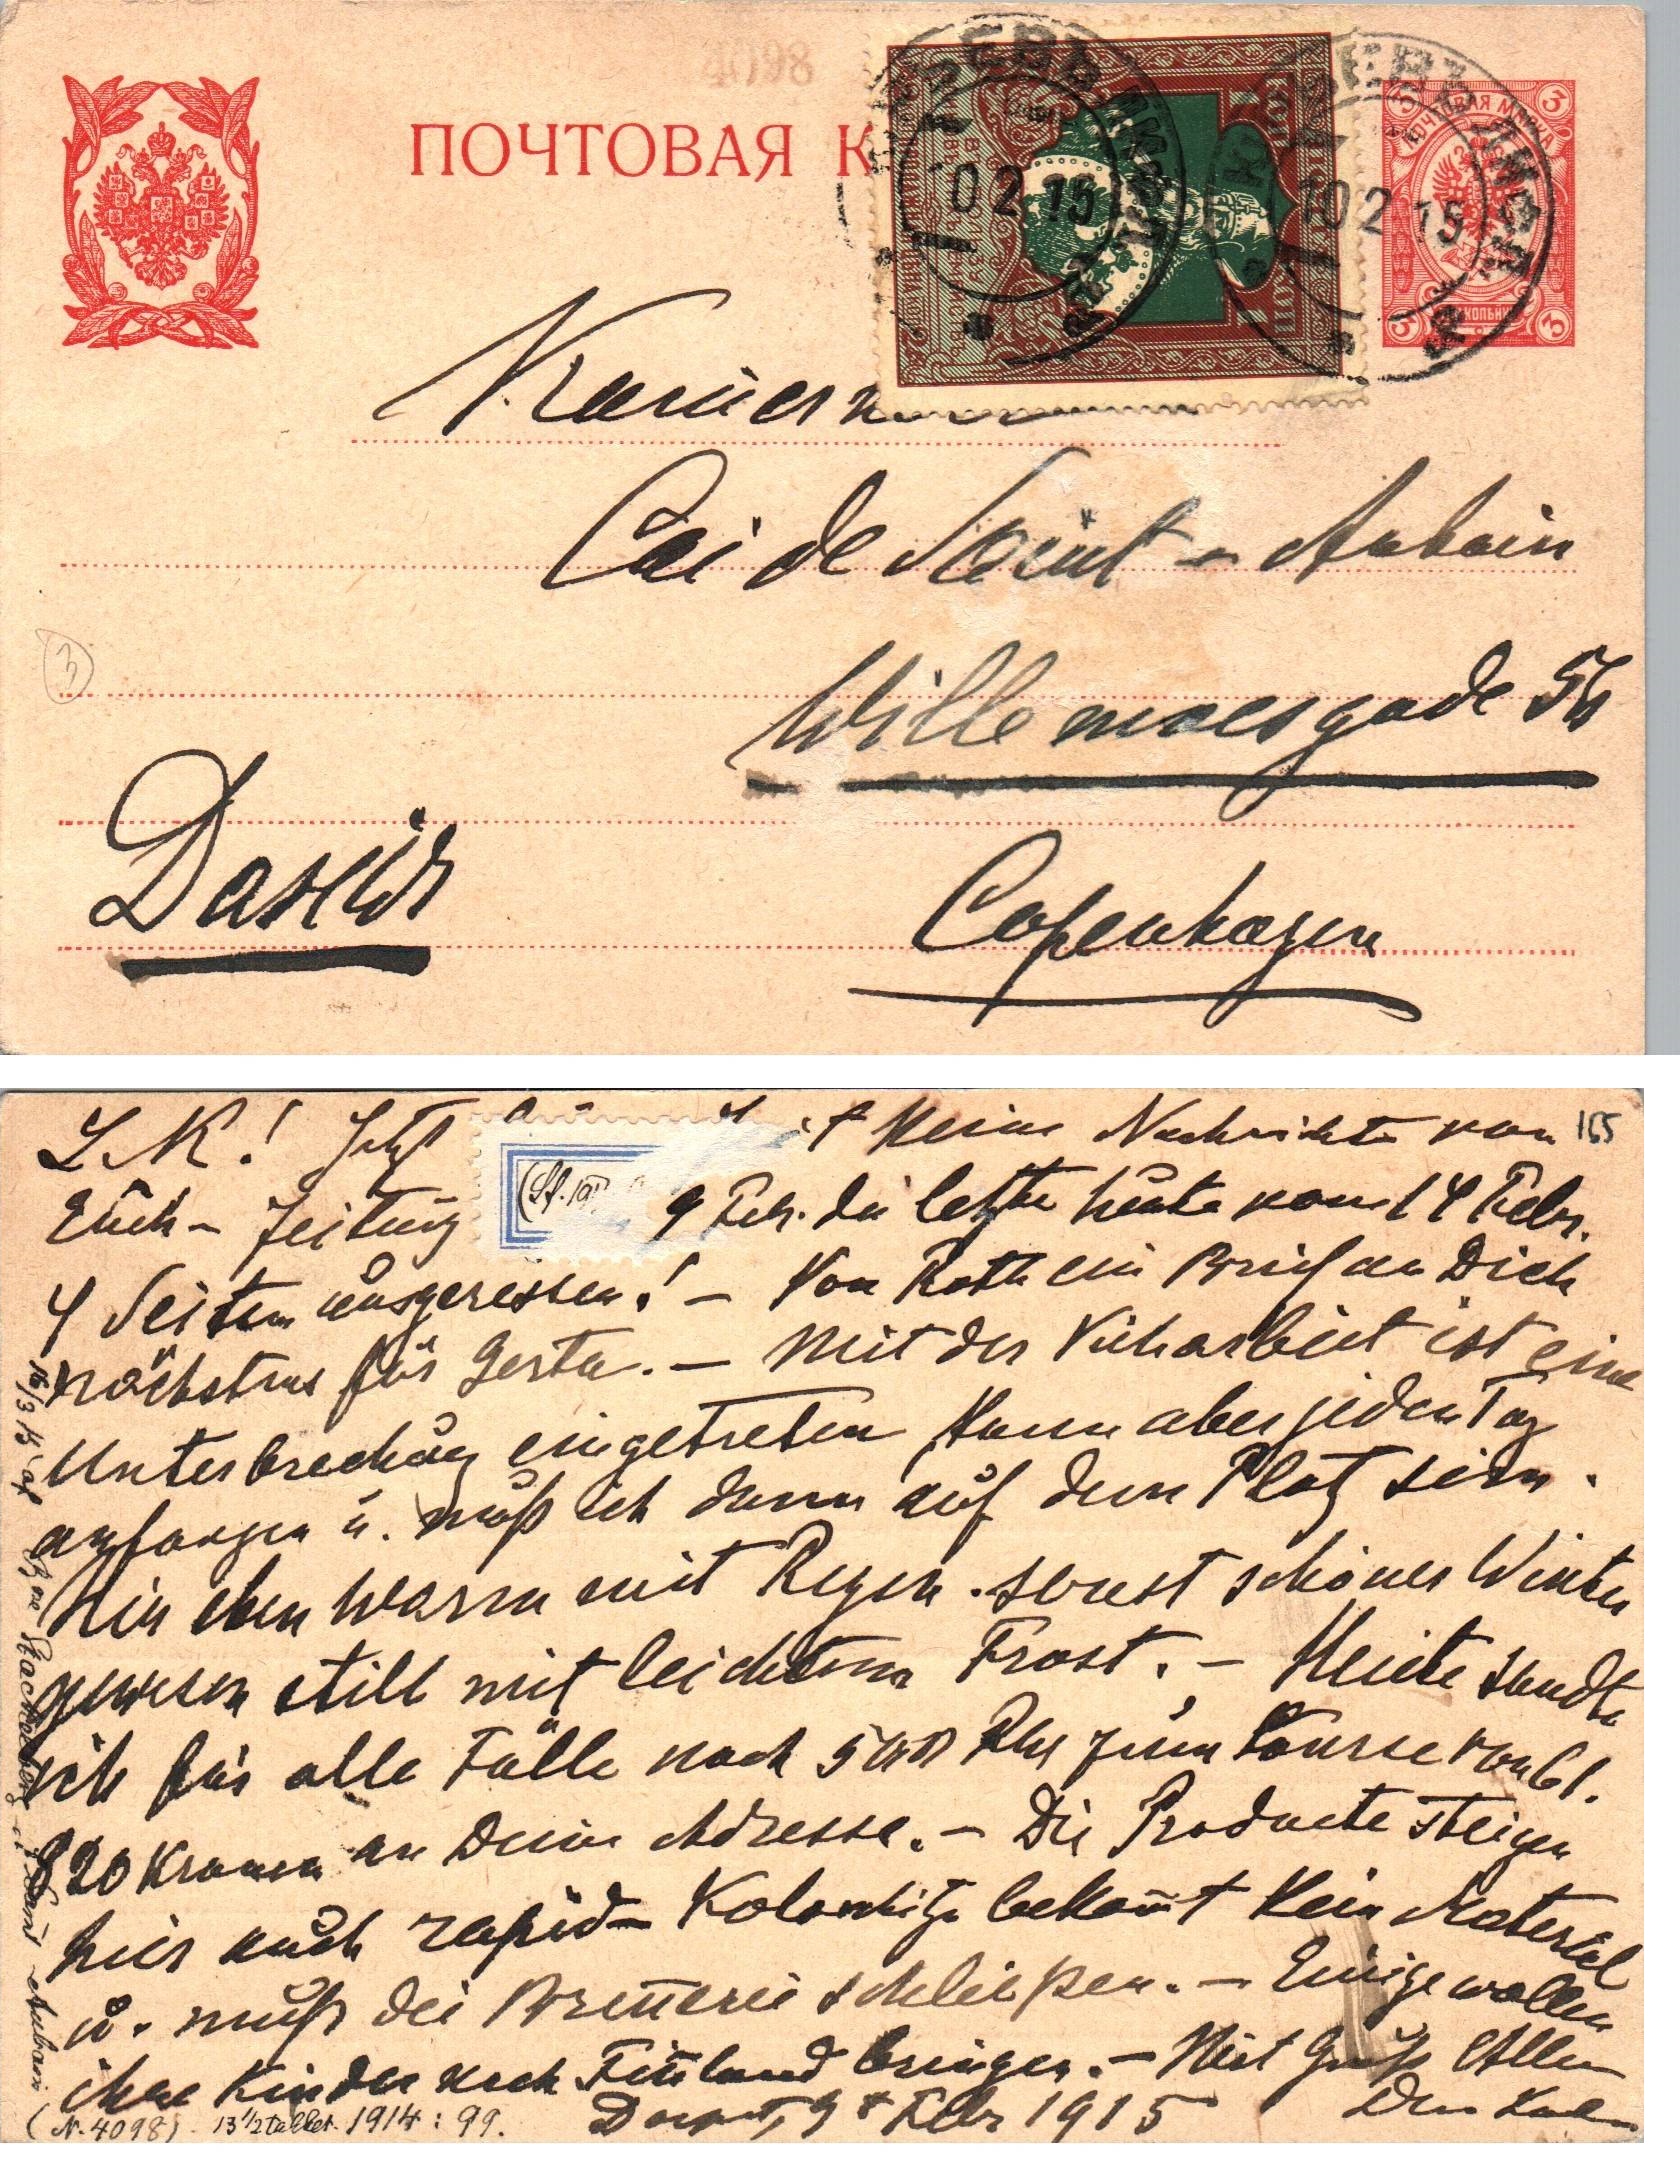 ПОЧТОВАЯ К
ПОЧТОВАЯ МАРКА
3 3
3 3
10 2 15
10 2 15
Cai de Saint-Aubain
Willemoesgade 54
Copenhagen
3
L. K.! Jetzt keine Nachrichten von
155
Euch - Zeitung 9 Febr. die letzte heute vom 14 Febr.
4 Seiten ausgerissen! - Von Roth ein Brief an Dich
nächstens für Gerta. - Mit der arbeit ist eine
Unterbrechung eingetreten, kann aber jeden Tag
anfangen u. muß ich dann auf dem Platz sein.
Hier eben warm mit Regen. sonst schöner Winter
gewesen still mit leichtem Frost. - Heute sandte
ich für alle Fälle noch 500 Rbl zum Kourse von 61.
820 Kronen an Deine Adresse. - Die Producte steigen
hier auch rapid - bekom̄t kein Material
u. muß die Bren̄erei schließen. - Einige wollen
ihre Kinder nach Fin̄land bringen. - Mit Gruß Allen
Dorpat, 9 Febr 1915 Dein
(N. 4098) 13½ takket. 1914: 99.
16/3 15 af
Stackelberg Saint Aubain